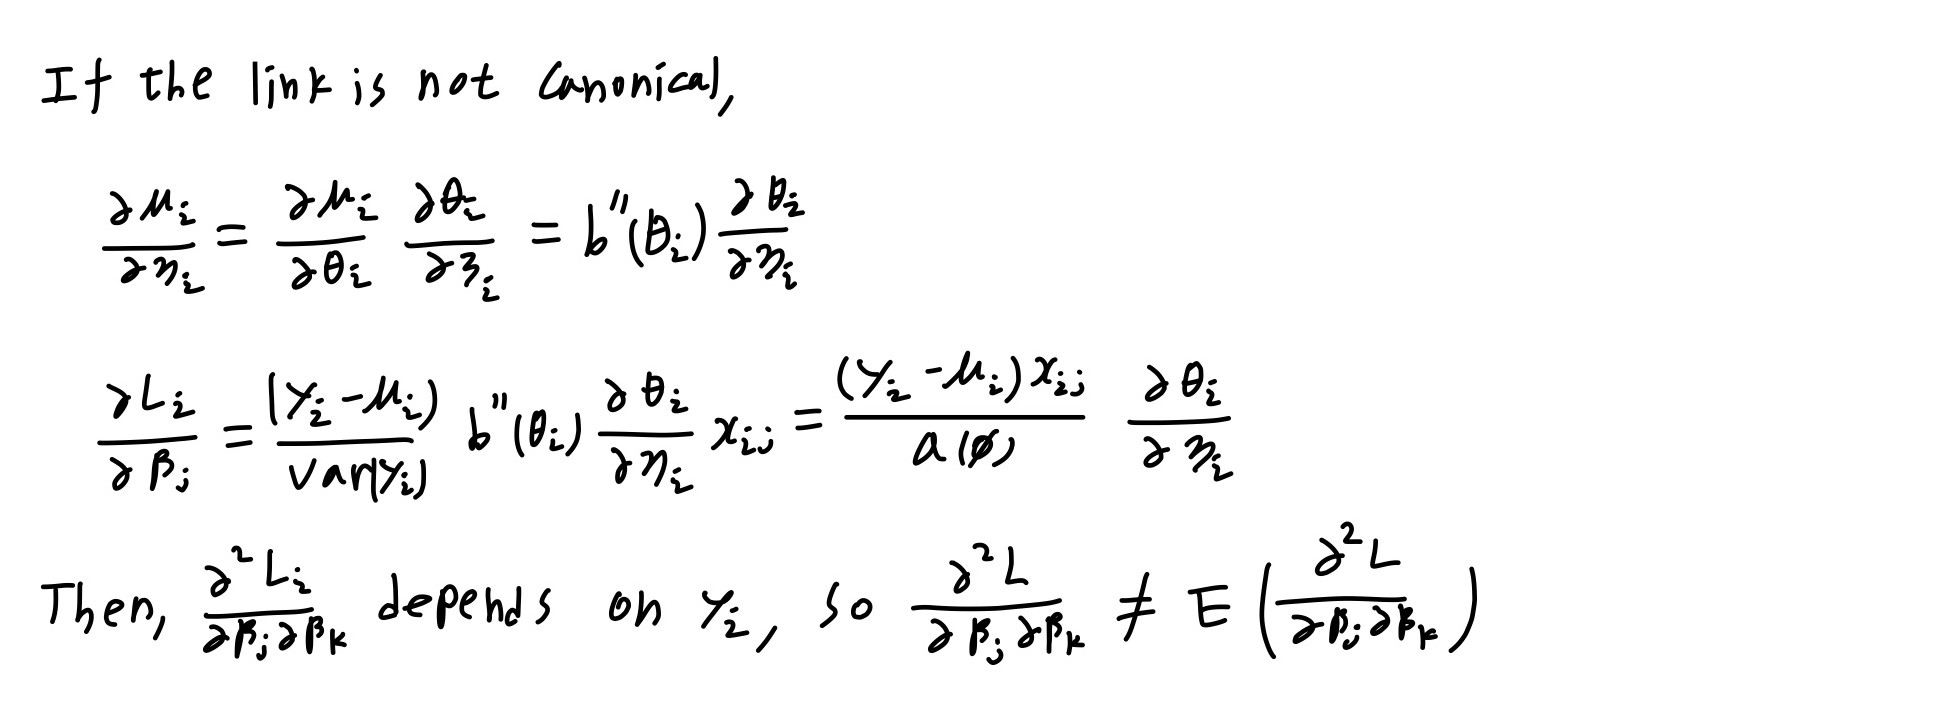 If the link is not canonical,
∂μᵢ/∂ηᵢ = ∂μᵢ/∂θᵢ ∂θᵢ/∂ηᵢ = b''(θᵢ) ∂θᵢ/∂ηᵢ
∂Lᵢ/∂βⱼ = (yᵢ-μᵢ)/var(yᵢ) b''(θᵢ) ∂θᵢ/∂ηᵢ xᵢⱼ = (yᵢ-μᵢ)xᵢⱼ/a(φ) ∂θᵢ/∂ηᵢ
Then, ∂²Lᵢ/∂βⱼ∂βₖ depends on yᵢ, so ∂²L/∂βⱼ∂βₖ ≠ E(∂²L/∂βⱼ∂βₖ)